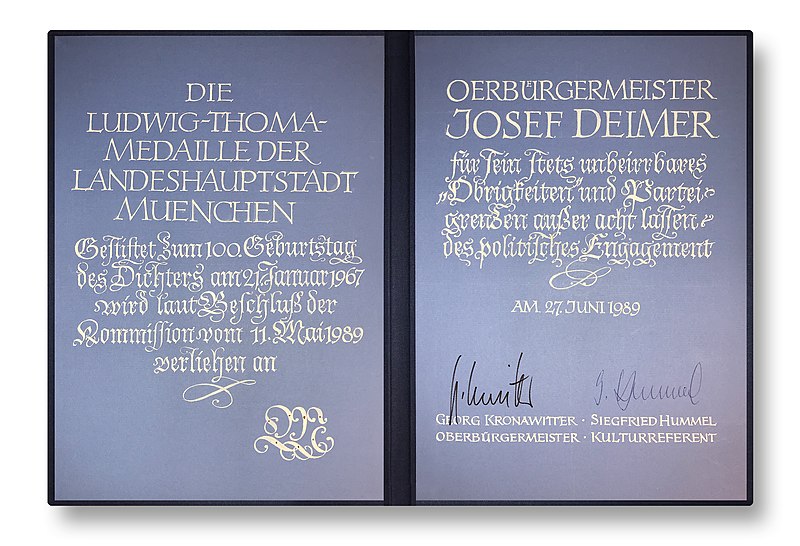 DIE
LUDWIG-THOMA-
MEDAILLE DER
LANDESHAUPTSTADT
MUENCHEN
Gestiftet zum 100. Geburtstag
des Dichters am 21. Januar 1967
wird laut Beschluß der
Kommission vom 11. Mai 1989
verliehen an
OERBÜRGERMEISTER
JOSEF DEIMER
für sein stets unbeirrbares
„Obrigkeiten“ und Partei-
grenzen außer acht lassen-
des politisches Engagement
AM 27. JUNI 1989
GEORG KRONAWITTER · SIEGFRIED HUMMEL
OBERBÜRGERMEISTER · KULTURREFERENT